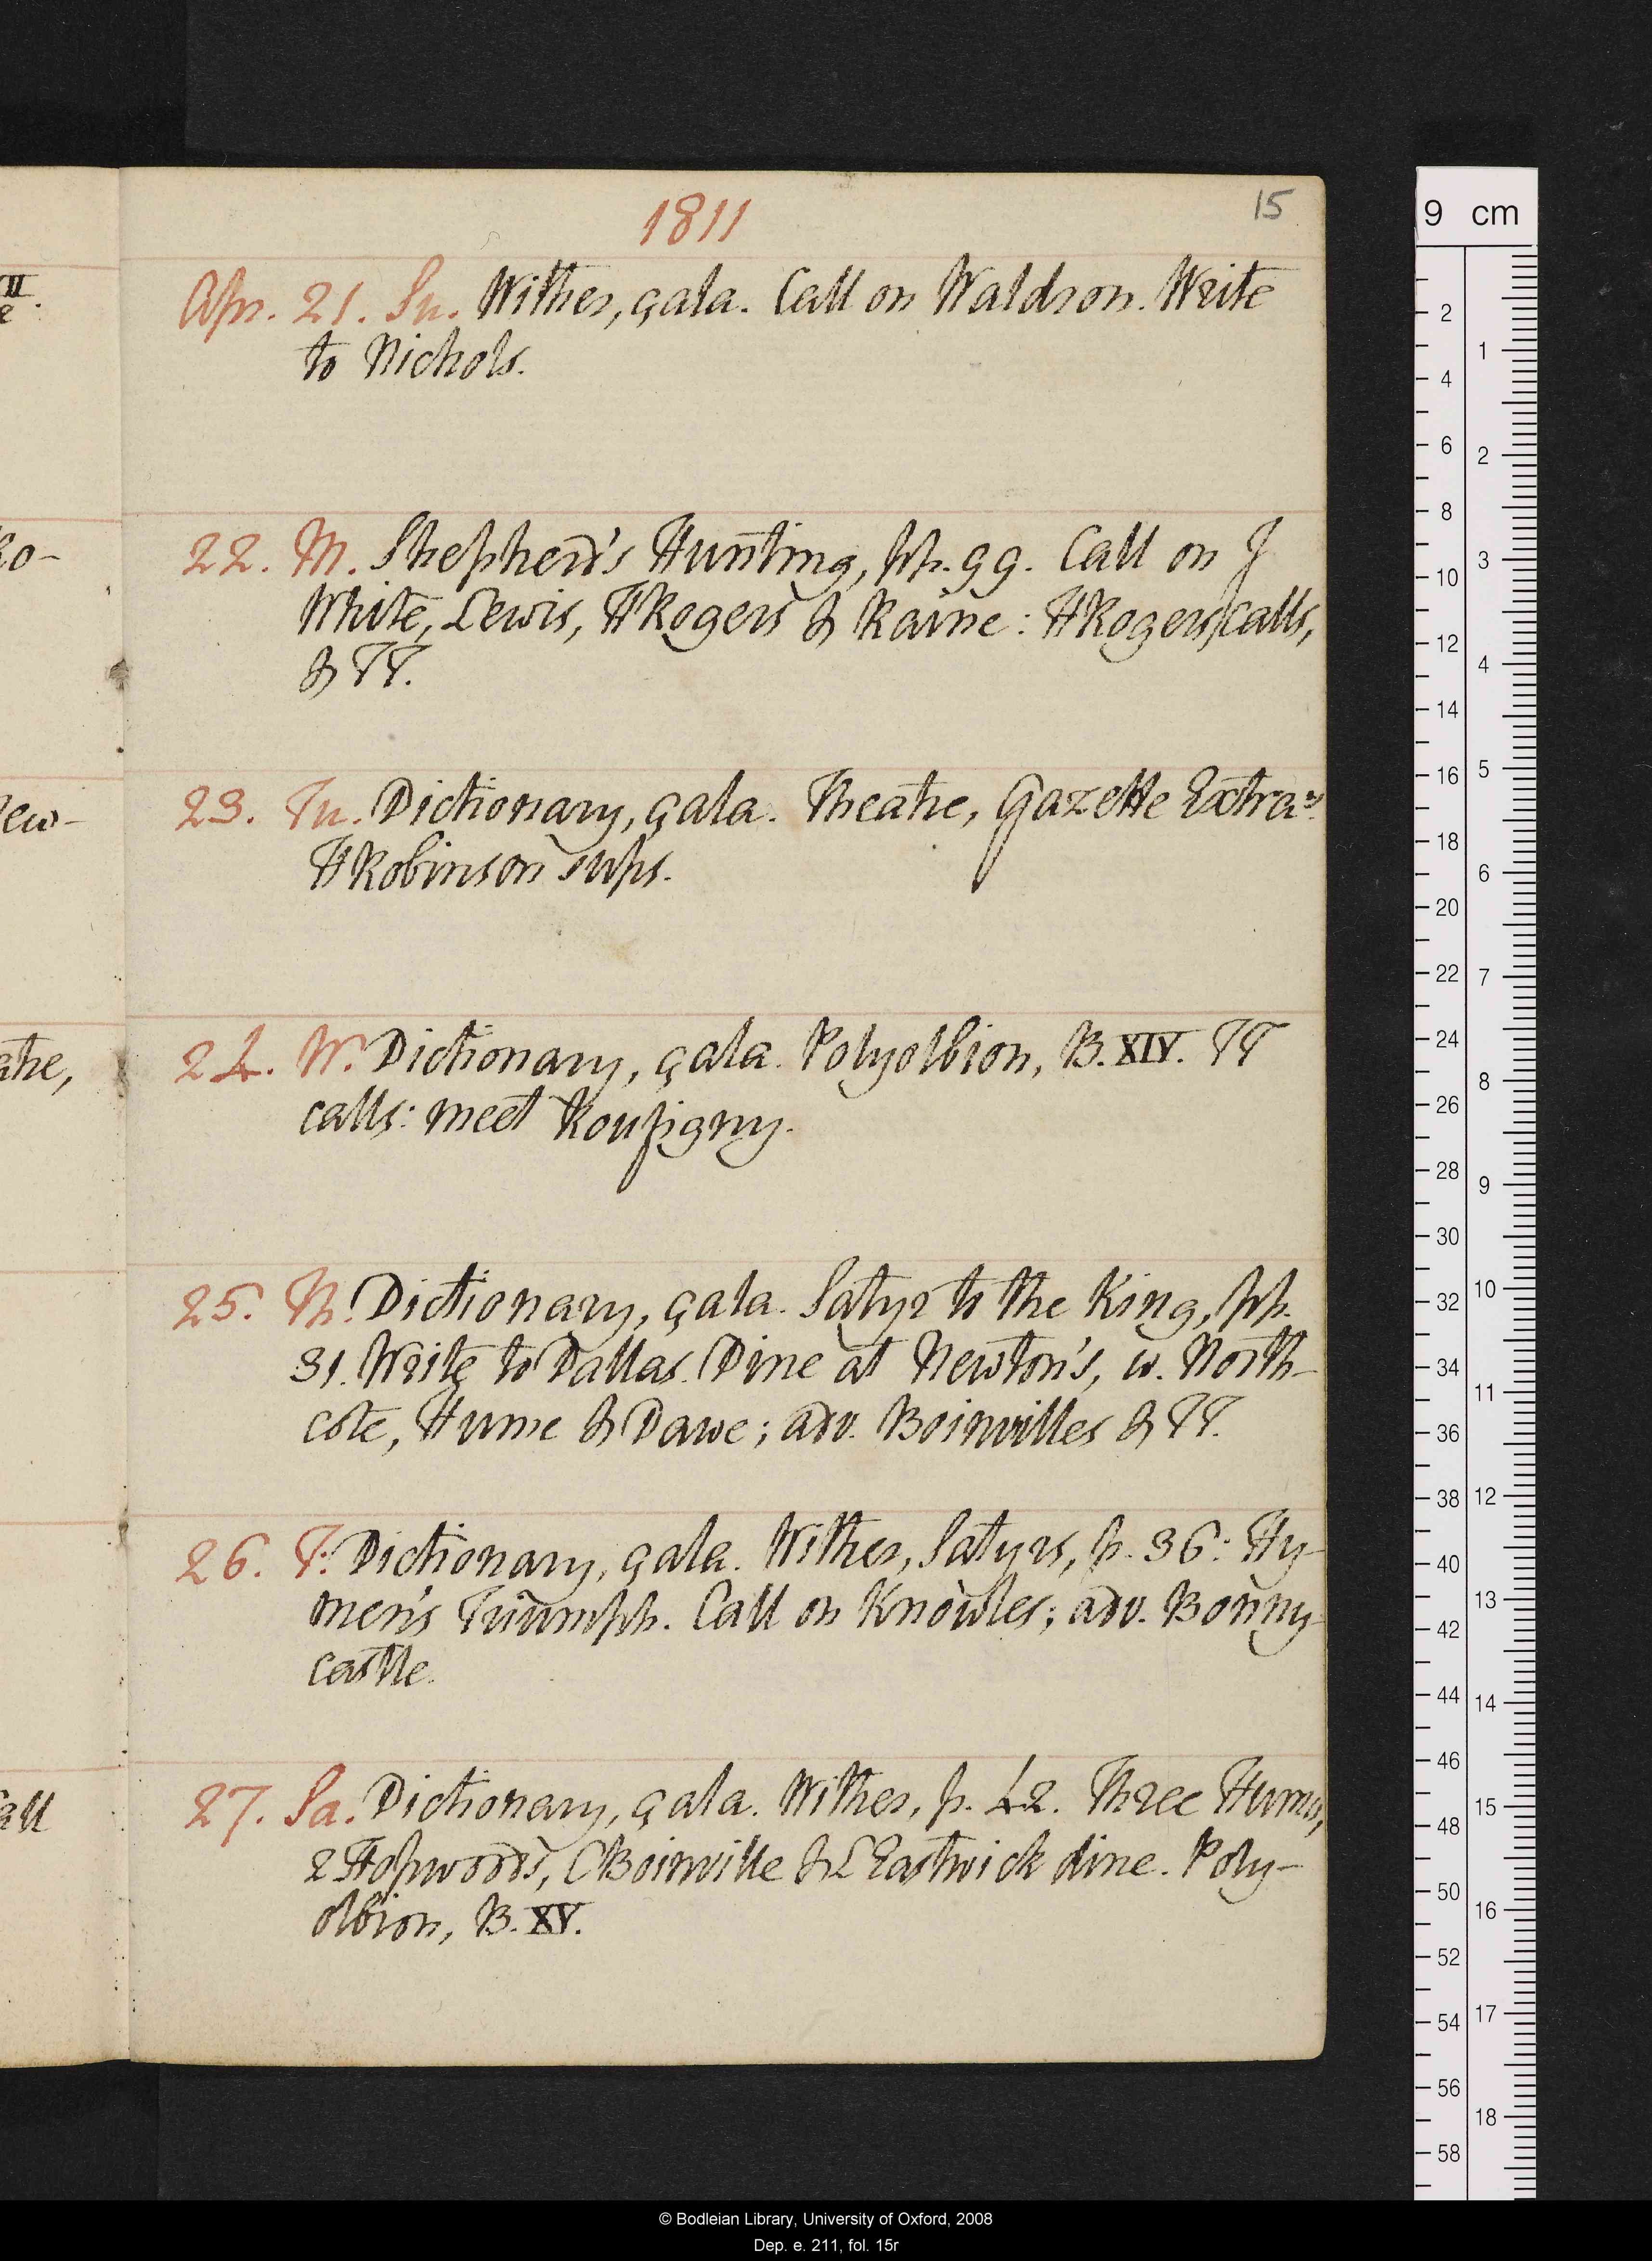 1811
15
Apr. 21. Su. Wither, çala. Call on Waldron. Write
to Nichols.
22. M. Shepherd's Hunting, pp. 99. Call on J
White, Lewis, H Rogers & Raine: H Rogers calls,
& TT.
23. Tu. Dictionary, çala. Theatre, Gazette Extrary.
H Robinson sups.
24. W. Dictionary, çala. Polyolbion, B. XIV. TT
calls: meet Roufigny.
25. Th. Dictionary, çala. Satyr to the King, pp.
31. Write to Dallas. Dine at Newton's, w. North-
cote, Hume & Dawe; adv. Boinvilles & TT.
26. F. Dictionary, çala. Wither, Satyrs, p. 36: Hy-
men's Triumph. Call on Knowles; adv. Bonny-
castle.
27. Sa. Dictionary, çala. Wither, p. 42. Three Humes,
2 Hopwoods, C Boinville & L Eastwick dine. Poly-
olbion, B. XV.
II.
e
ko-
New-
atre,
Call
9 cm
2
4
6
8
10
12
14
16
18
20
22
24
26
28
30
32
34
36
38
40
42
44
46
48
50
52
54
56
58
1
2
3
4
5
6
7
8
9
10
11
12
13
14
15
16
17
18
© Bodleian Library, University of Oxford, 2008
Dep. e. 211, fol. 15r